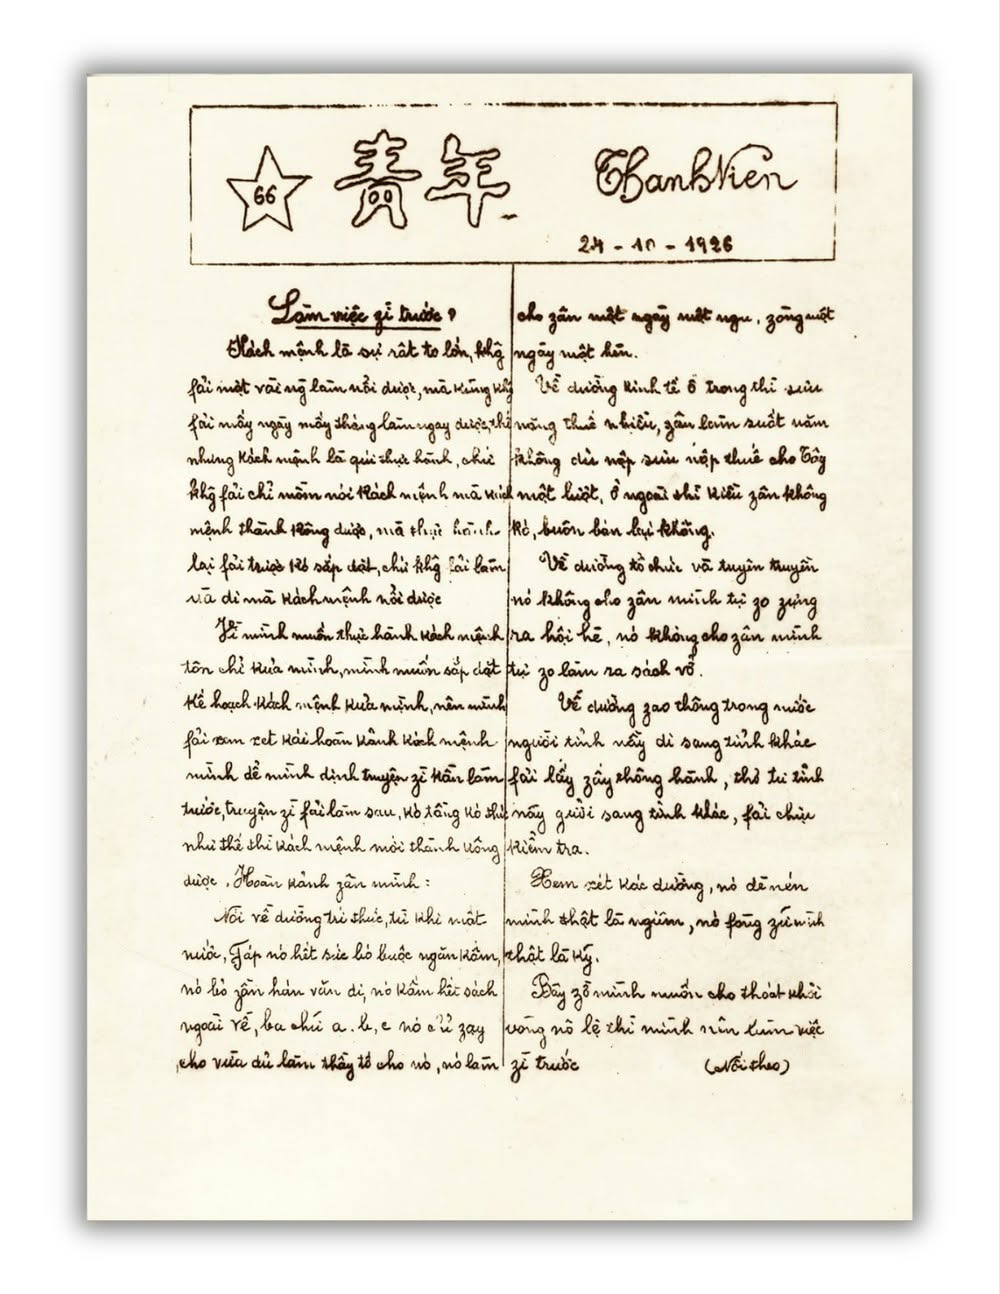 66 青年 ThanhNien
24 - 10 - 1926
Làm việc zì trước?
Kách mệnh là sự rất to lớn, khg
fải một vài ng làm nổi được, mà kũng khg
fải mấy ngày mấy tháng làm ngay được, thế
nhưng kách mệnh là quí thực hành, chứ
khg fải chỉ mồm nói kách mệnh mà kách
mệnh thành kông được, mà thực hành
lại fải trước kó sắp đặt, chứ khg fải làm
và đi mà kách mệnh nổi được
Zì mình muốn thực hành kách mệnh
tôn chỉ kủa mình, mình muốn sắp đặt
kế hoạch kách mệnh kủa mình, nên mình
fải xem xét kái hoàn kảnh kách mệnh
mình để mình định truyện zì kần làm
trước, truyện zì fải làm sau, kó tầng kó thứ
như thế thì kách mệnh mới thành kông
được. Hoàn kảnh zân mình:
Nói về đường trí thức, từ khi mất
nước, Fáp nó hết sức bó buộc ngăn kấm,
nó bỏ zần hán văn đi, nó kấm hết sách
ngoài về, ba chữ a. b, c nó chỉ zạy
cho vừa đủ làm thầy tớ cho nó, nó làm
cho zân một ngày một ngu, zòng một
ngày một hèn.
Về đường kinh tế ở trong thì sưu
nặng thuế nhiều, zân làm suốt năm
không đủ nộp sưu nộp thuế cho Tây
một lượt, ở ngoài thì kiều zân không
kó, buôn bán lại không.
Về đường tổ chức và tuyên truyền
nó không cho zân mình tự zo zựng
ra hội hè, nó không cho zân mình
tự zo làm ra sách vở.
Về đường zao thông trong nước
người tỉnh nầy đi sang tỉnh khác
fải lấy zấy thông hành, thơ từ tỉnh
nầy gưởi sang tỉnh khác, fải chịu
kiểm tra.
Xem xét kác đường, nó đè nén
mình thật là ngiêm, nó fòng zữ mình
thật là kỹ.
Bây zờ mình muốn cho thoát khỏi
vòng nô lệ thì mình nên làm việc
zì trước (Nối theo)